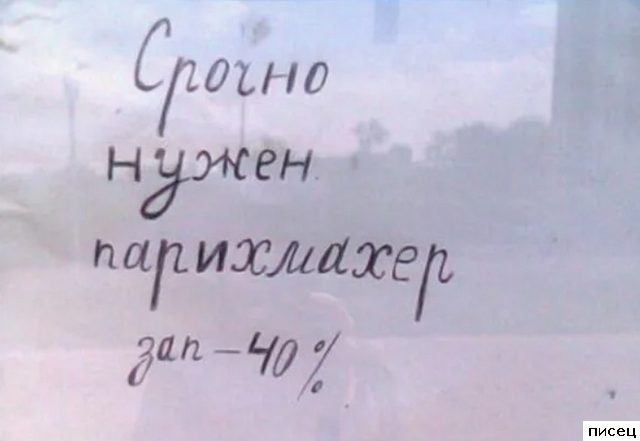 Срочно
нужен
парихмахер
зап - 40 %
писец